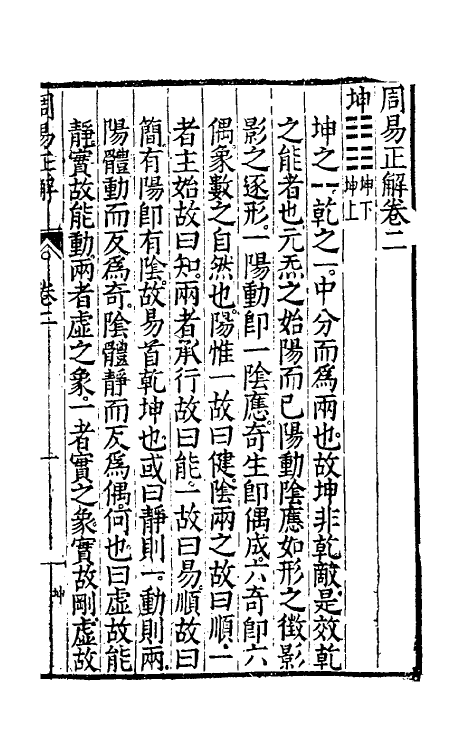 周易正解卷二
坤 坤下坤上
坤之一乾之一。中分而爲兩也。故坤非乾敵。是效乾
之能者也元炁之始陽而已陽動陰應如形之徵影
影之逐形。一陽動卽一陰應。奇生卽偶成。六奇卽六
偶。象數之自然也。陽惟一故曰健。陰兩之故曰順。一
者主始故曰知。兩者承行故曰能。一故曰易。順故曰
簡。有陽卽有陰。故易首乾坤也。或曰靜則一。動則兩
陽體動而反爲奇。陰體靜而反爲偶。何也。曰虛故能
靜。實故能動。兩者虛之象。一者實之象。實故剛。虛故
周易正解 卷二 一 坤